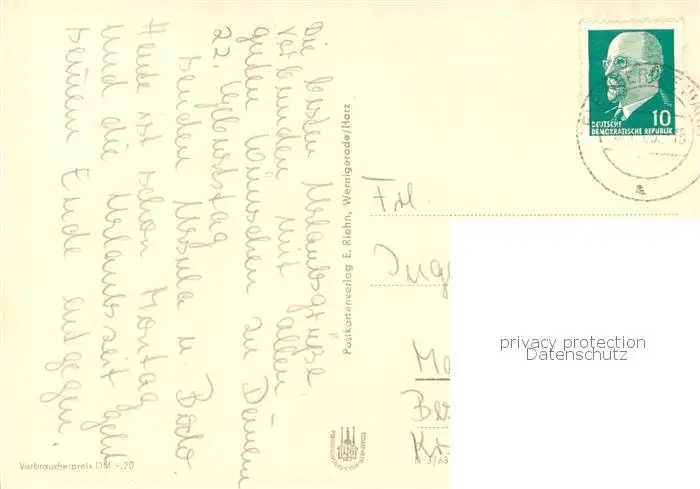 Die besten Urlaubsgrüße
verbunden mit allen
guten Wünschen zu Deinem
22. Geburtstag
senden Ursula u. Bodo.
Heute ist schon Montag
und die Urlaubszeit geht
seinem Ende entgegen.
Postkartenverlag E. Riehn, Wernigerode/Harz
10
DEUTSCHE
DEMOKRATISCHE REPUBLIK
Frl.
Inge
privacy protection
Datenschutz
Verbraucherpreis DM -.20
N 3/63